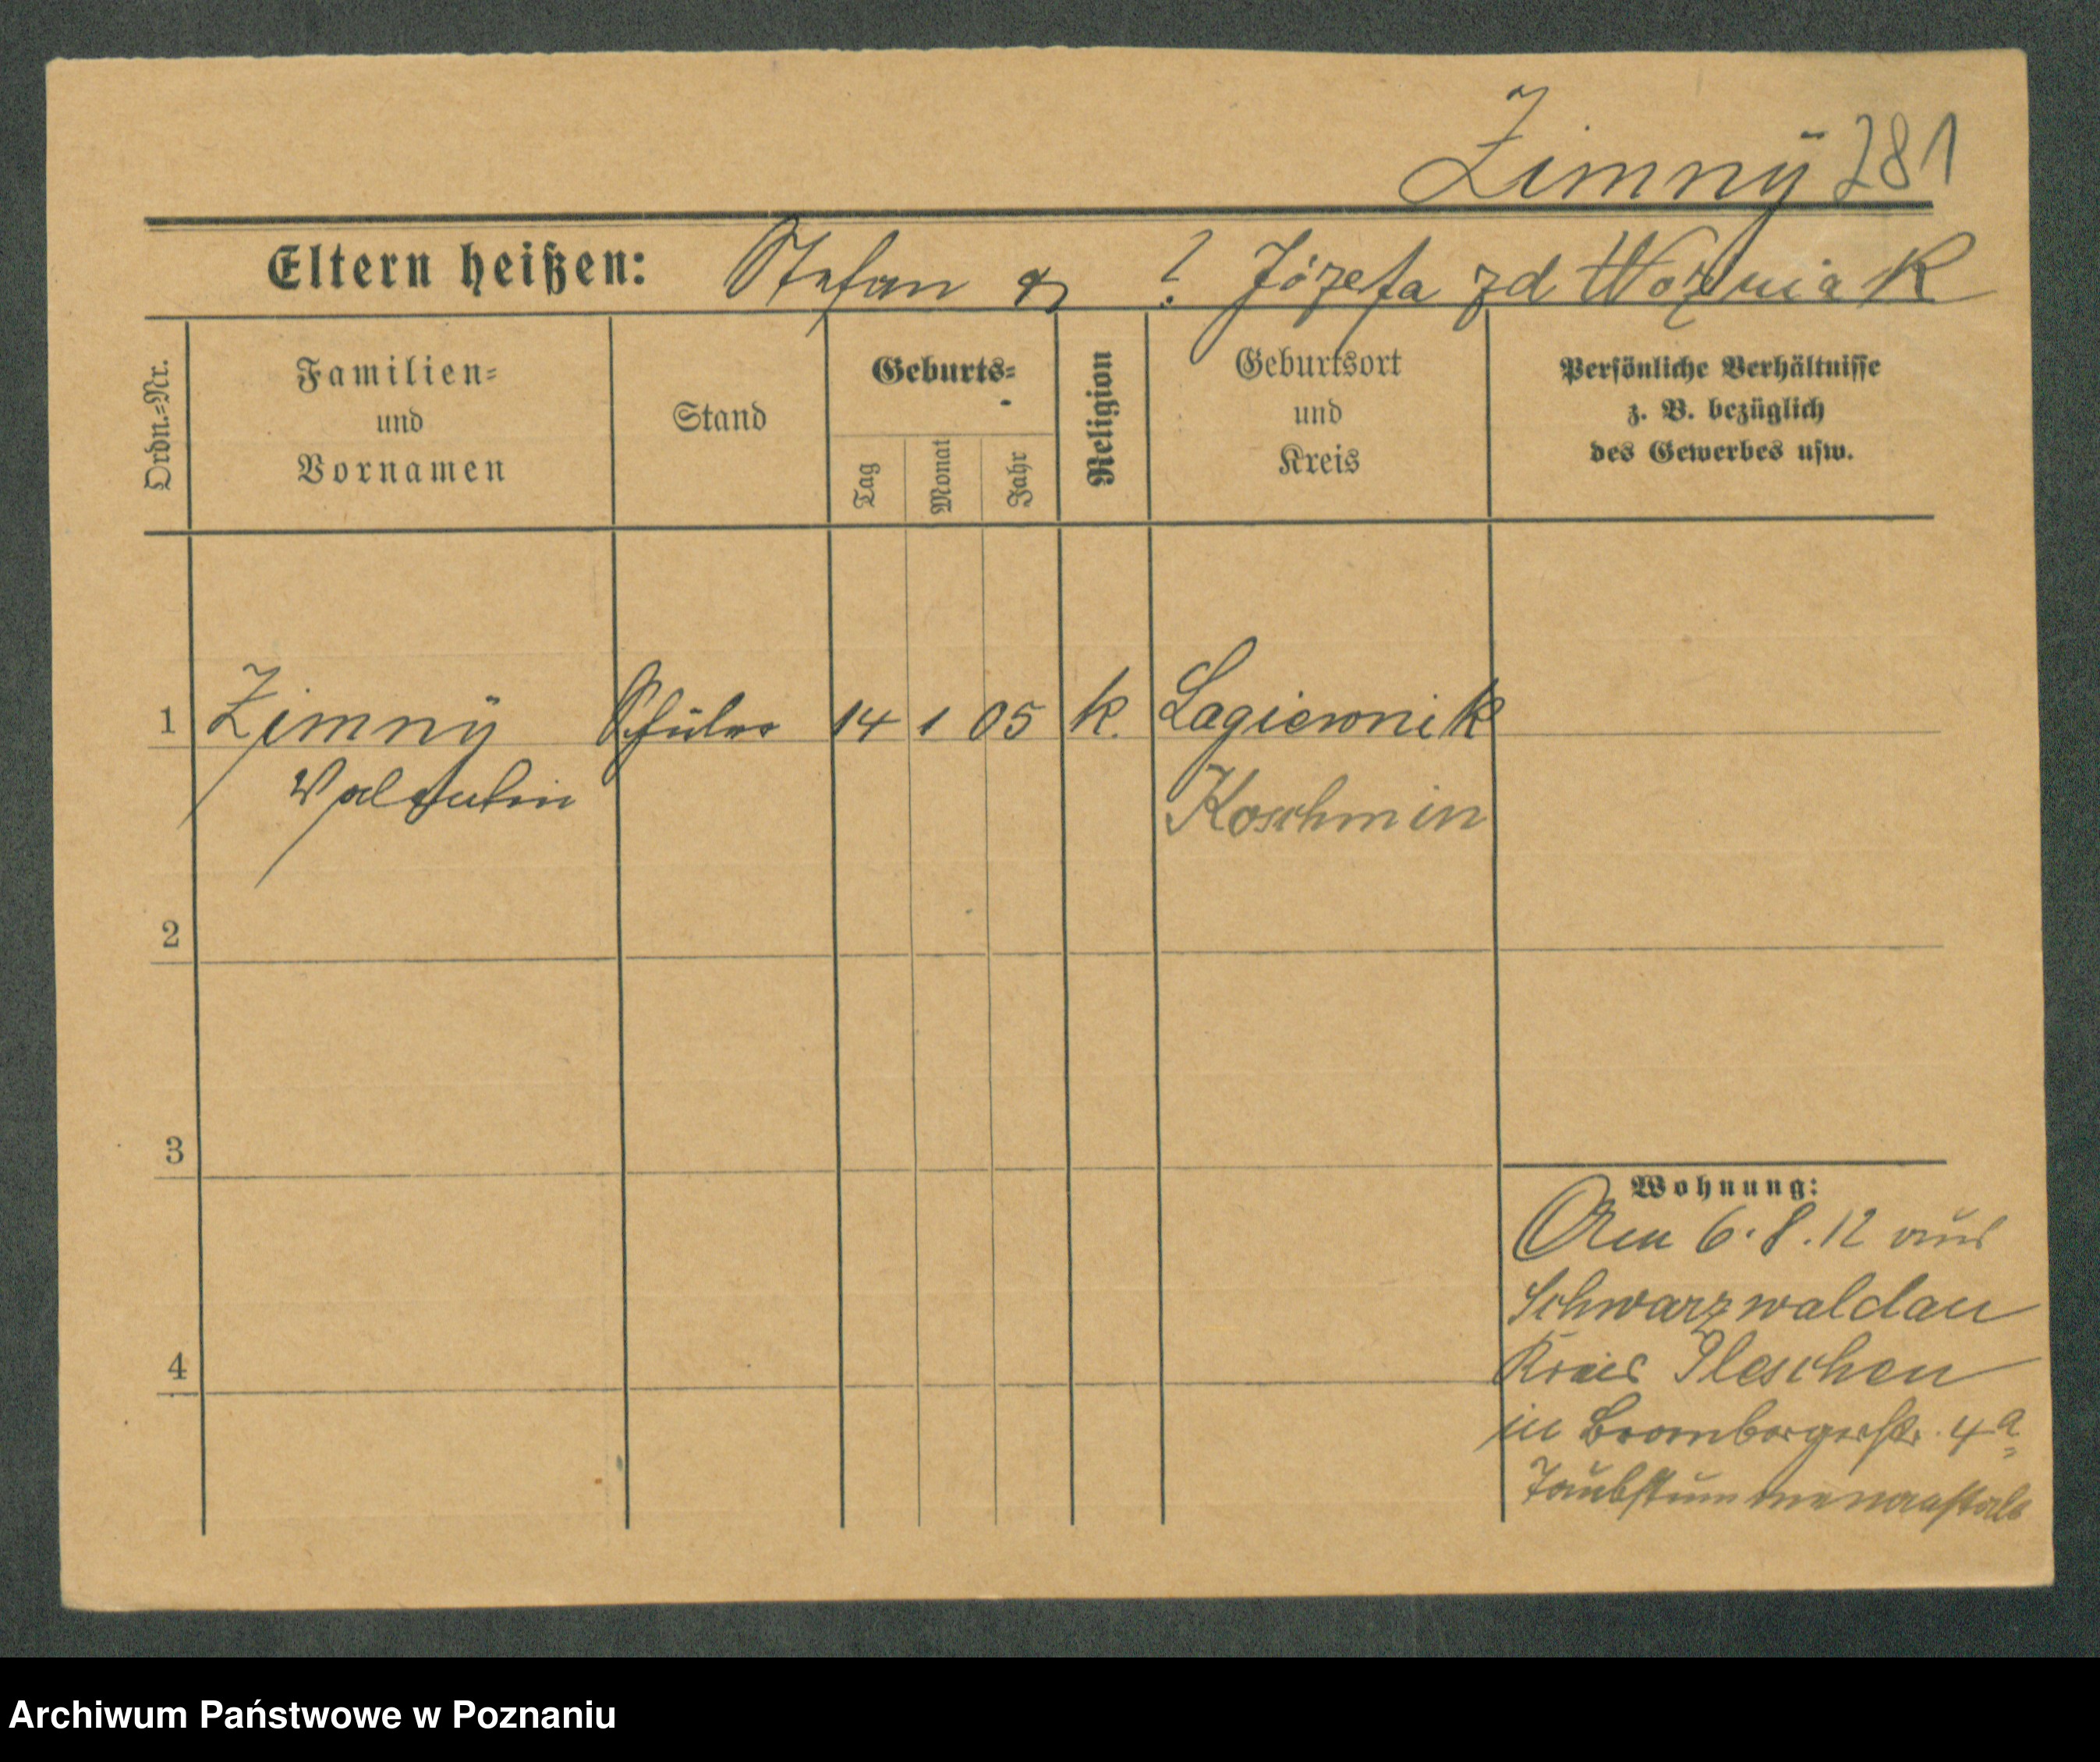 Zimny 281
Eltern heißen: Stefan & ? Józefa zd Woźniak
Ordn.-Nr.
Familien-
und
Vornamen
Stand
Geburts-
Tag
Monat
Jahr
Religion
Geburtsort
und
Kreis
Persönliche Verhältnisse
z. B. bezüglich
des Gewerbes usw.
1 Zimny Schüler 14 1 05 k. Lagiewnik
Valentin Koschmin
2
3
4
Wohnung:
Am 6.8.12 aus
Schwarzwaldau
Kreis Pleschen
in Brombergerstr. 4a
Taubstummenanstalt
Archiwum Państwowe w Poznaniu